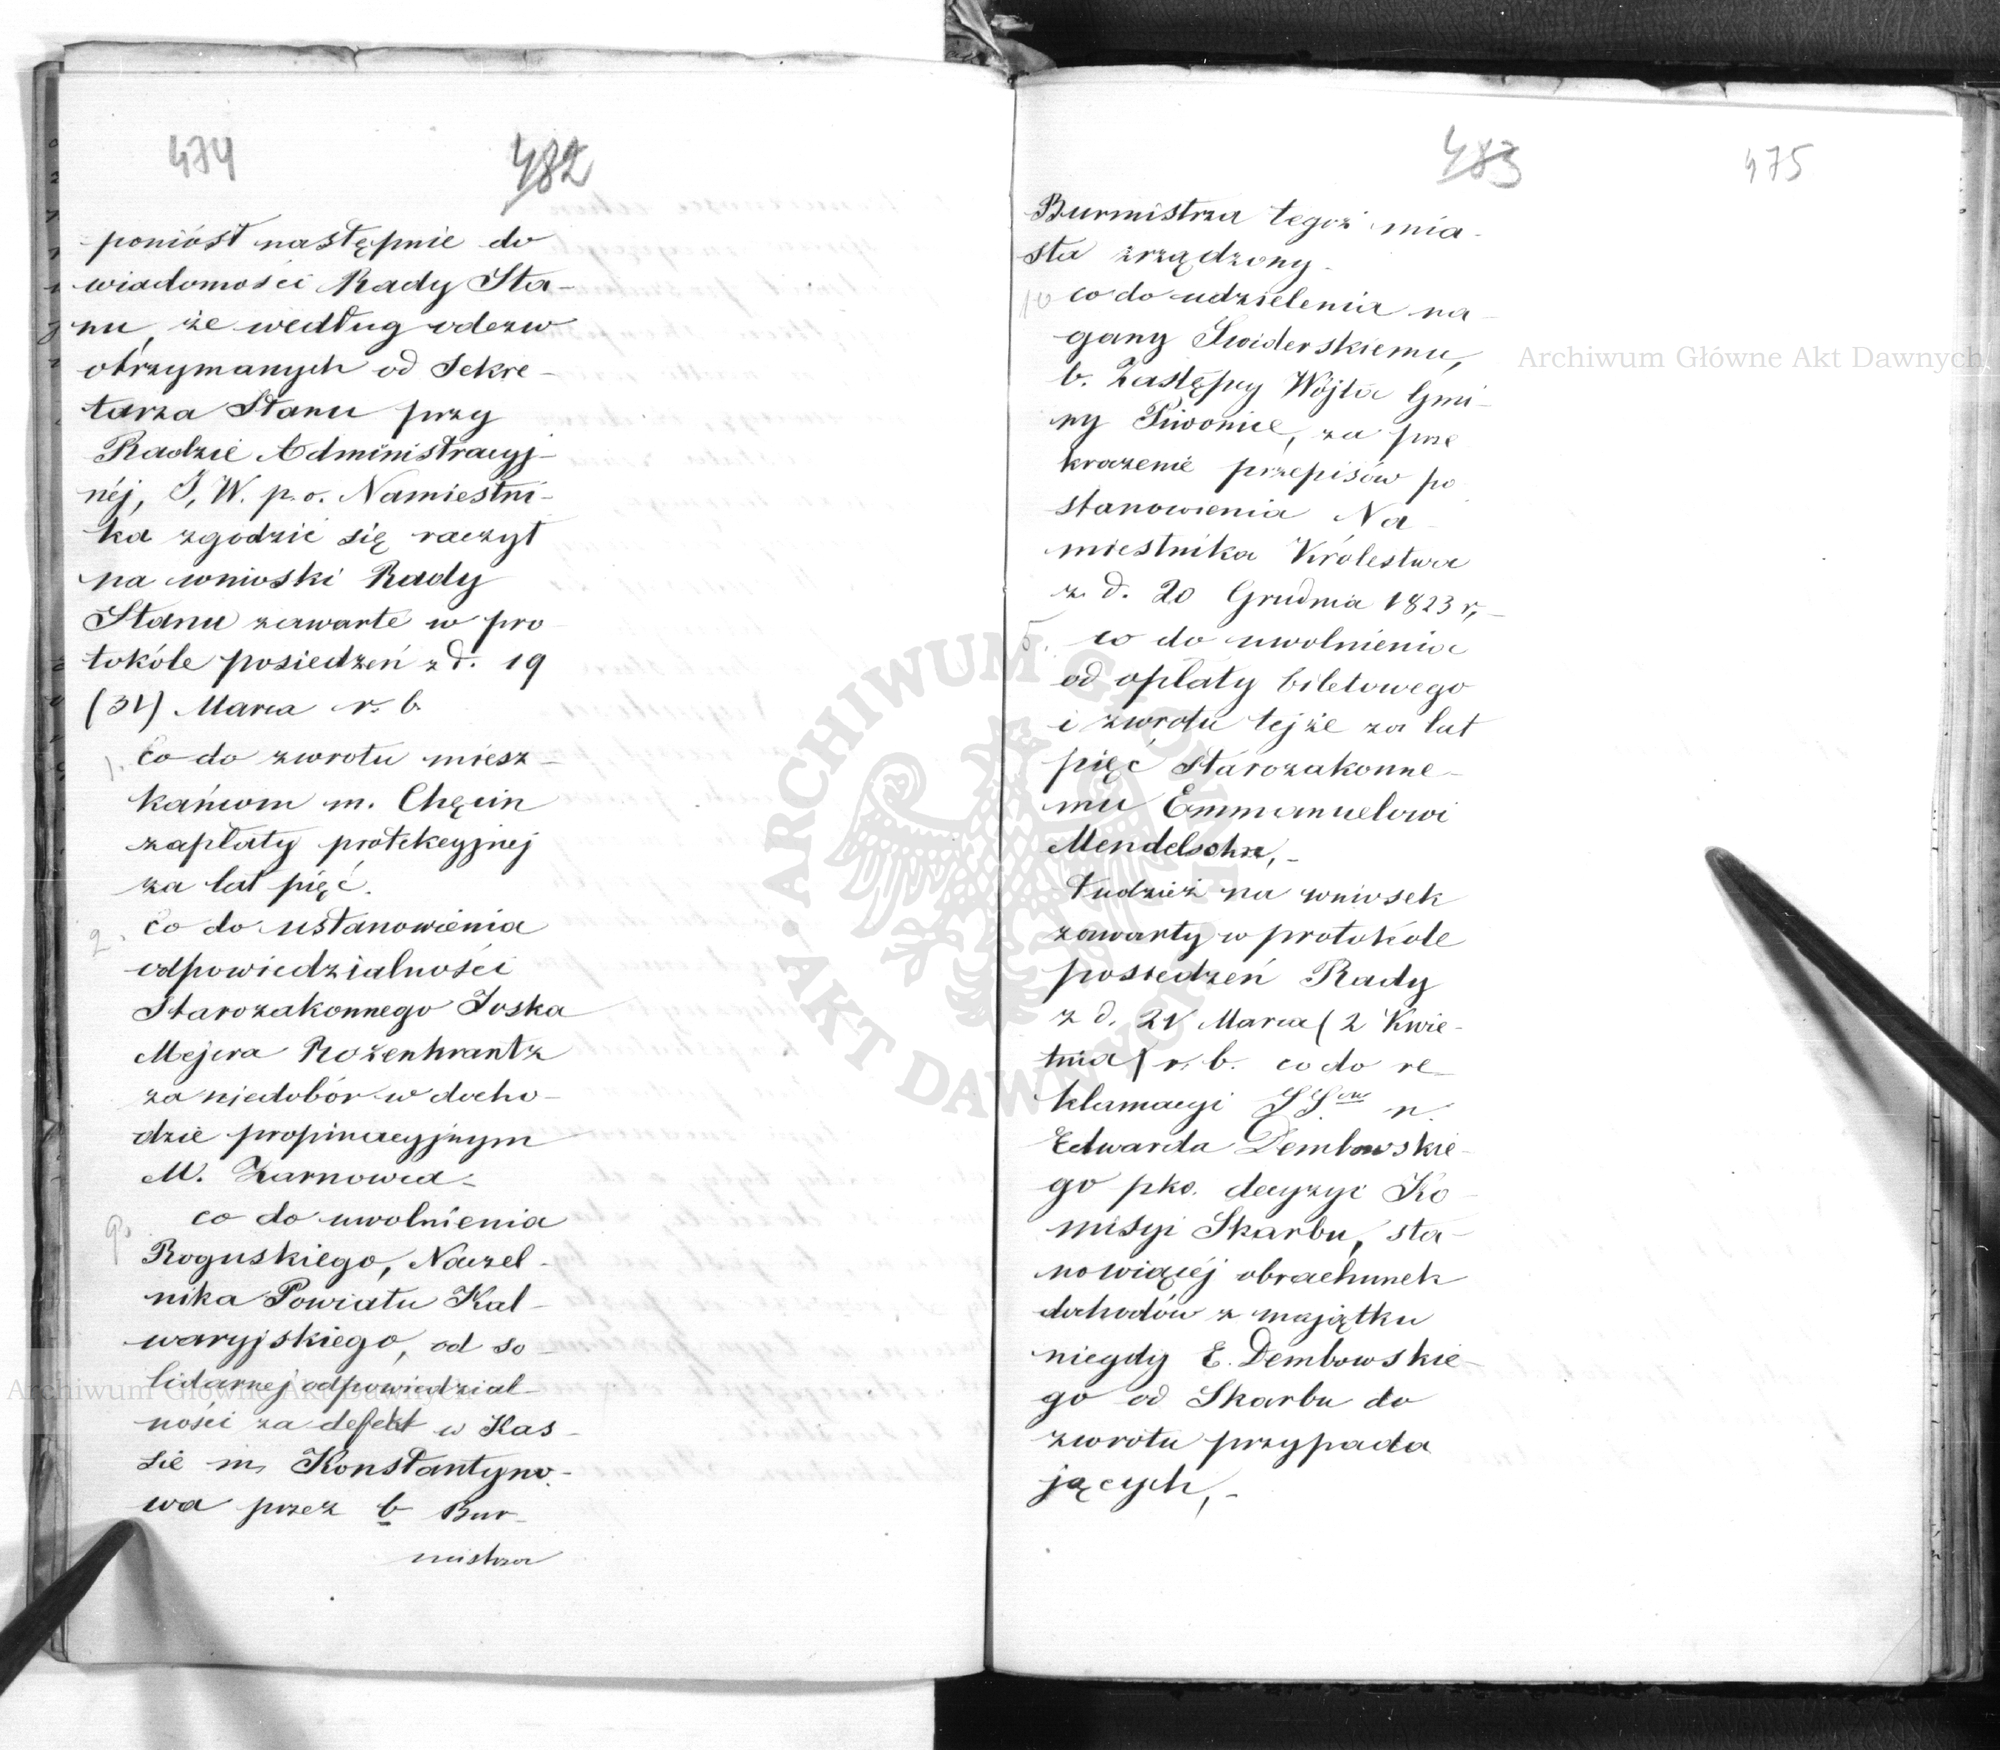 474
482
poniósł następnie do
wiadomości Rady Sta-
nu, że według odezw
otrzymanych od Sekre-
tarza Stanu przy
Radzie Administracyj-
néj, J. W. p. o. Namiestni-
ka zgodzić się raczył
na wnioski Rady
Stanu zawarte w pro
tokóle posiedzeń z d. 19
(31) Marca r. b.
1. Co do zwrotu miesz-
kańcom m. Chęcin
zapłaty protekcyjnej
za lat pięć.
2. Co do ustanowienia
odpowiedzialności
Starozakonnego Joska
Mejera Rozenkrantz
za niedobór w docho-
dzie propinacyjnym
M. Żarnowca-
9. co do uwolnienia
Roguskiego, Naczel-
nika Powiatu Kal-
waryjskiego, od so-
lidarnej odpowiedzial-
ności za defekt w Kas-
sie m. Konstantyno-
wa przez b Bur-
mistrza
483
475
Burmistrza tegoż mia-
sta zrządzony-
10 co do udzielenia na-
gany Świderskiemu,
b. Zastępcy Wójta Gmi-
ny Piwonice, za prze
kroczenie przepisów po
stanowienia Na-
miestnika Królestwa
z d. 20 Grudnia 1823 r,-
5. co do uwolnienia
od opłaty biletowego
i zwrotu tejże za lat
pięć Starozakonne-
mu Emmanuelowi
Mendelsohn,-
Tudzież na wniosek
zawarty w protokóle
posiedzeń Rady
z d. 21 Marca (2 Kwie-
tnia) r. b. co do re-
klamacyi SS. ów n.
Edwarda Dembowskie-
go pko. decyzyi Ko-
misyi Skarbu, sta-
nowiącéj obrachunek
dochodów z majątku
niegdy E. Dembowskie-
go od Skarbu do
zwrotu przypada
jących,-
Archiwum Główne Akt Dawnych
Archiwum Główne Akt Dawnych
ARCHIWUM GŁÓWNE · AKT DAWNYCH